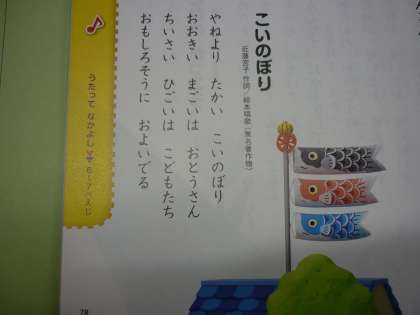 こいのぼり
近藤宮子 作詞／絵本唱歌（無名著作物）
やねより たかい こいのぼり
おおきい まごいは おとうさん
ちいさい ひごいは こどもたち
おもしろそうに およいでる
うたって なかよし
6〜7ぺえじ
78